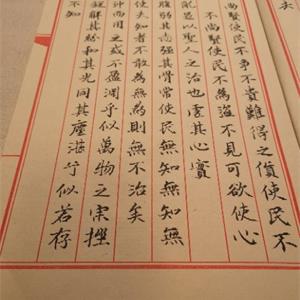 尚賢使民不爭不貴難得之貨使民不
不尚賢使民不為盜不見可欲使心
亂是以聖人之治也虛其心實
腹弱其志強其骨常使民無知無知無
使夫知者不敢為無為則無不治矣
沖而用之或不盈淵乎似萬物之宗挫
銳解其紛和其光同其塵湛兮似若存
不知